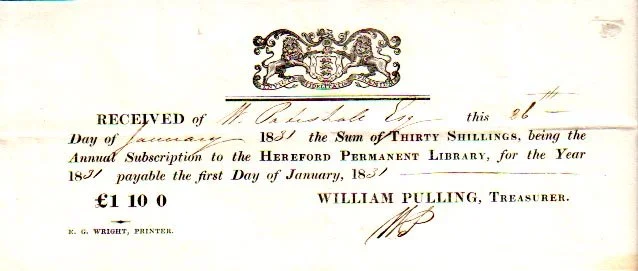 INVICTÆ FIDELITATIS PRÆMIUM
RECEIVED of W. Pateshall Esq this 26th
Day of January 1831 the Sum of THIRTY SHILLINGS, being the
Annual Subscription to the HEREFORD PERMANENT LIBRARY, for the Year
1831 payable the first Day of January, 1831
£1 10 0 WILLIAM PULLING, TREASURER.
WP
E. G. WRIGHT, PRINTER.